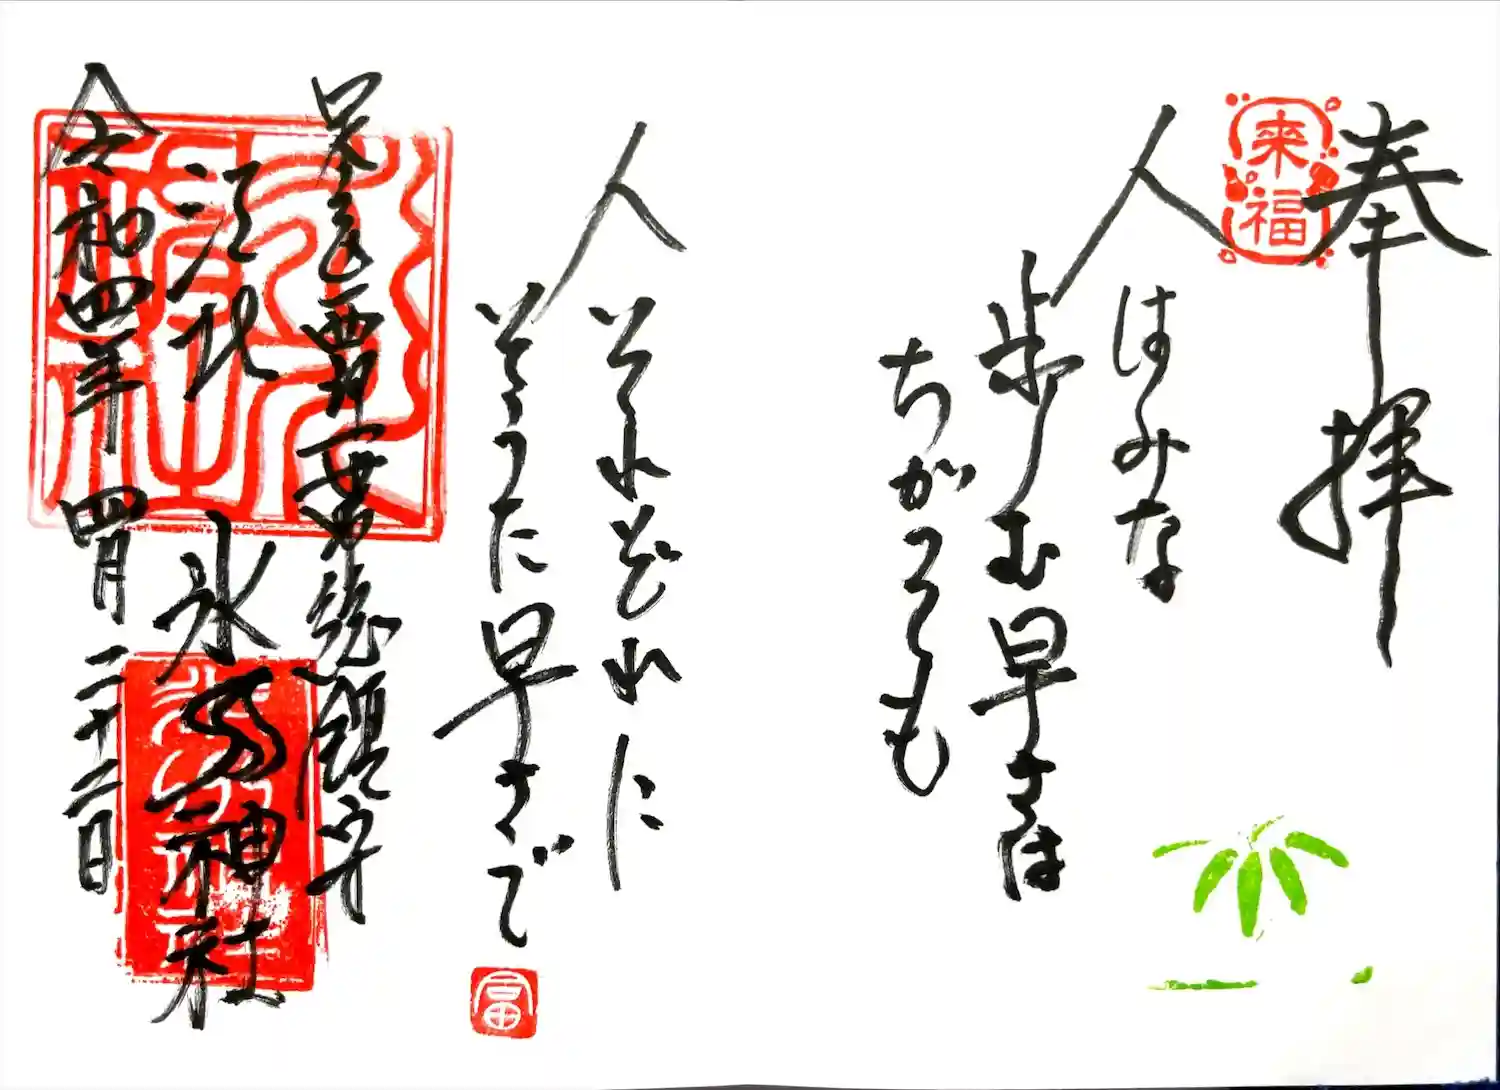 奉拝
来福
人はみな
歩む早さは
ちがつても
人それぞれに
そつた早さで
冨
総領守
江北
氷川神社
令和四年
四月二十二日